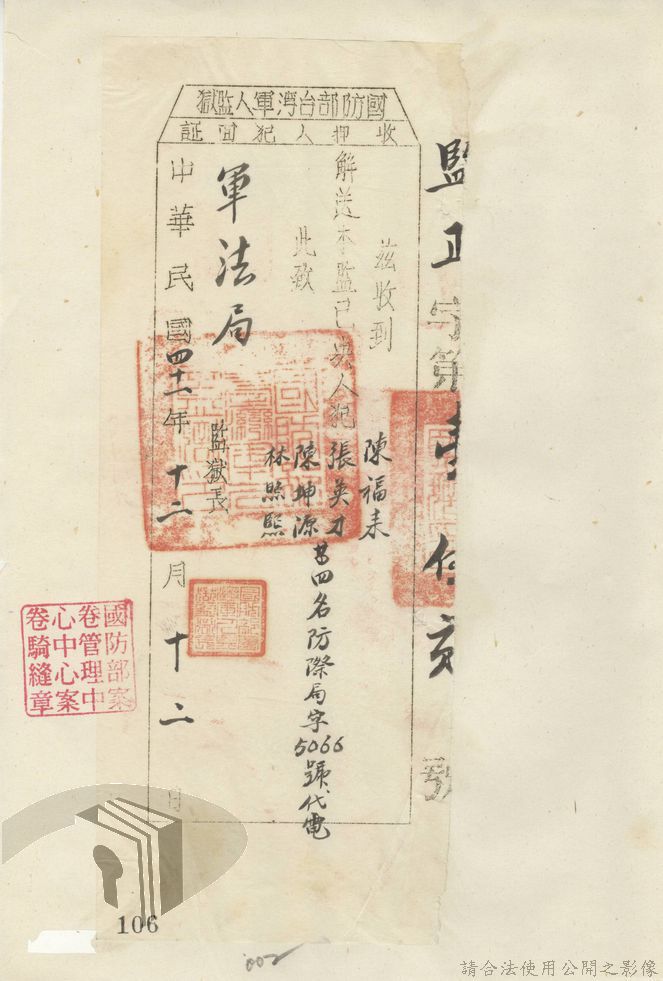 國防部台灣軍人監獄
收押人犯回証
茲收到
解送本監已決人犯
陳福來
張英才
陳坤源
林照熙
等四名防際局字5066號代電
此致
軍法局
監獄長
中華民國四十一年十二月十二日
監正字第
號
國防部案
卷管理中
心中心案
卷騎縫章
106
002
請合法使用公開之影像